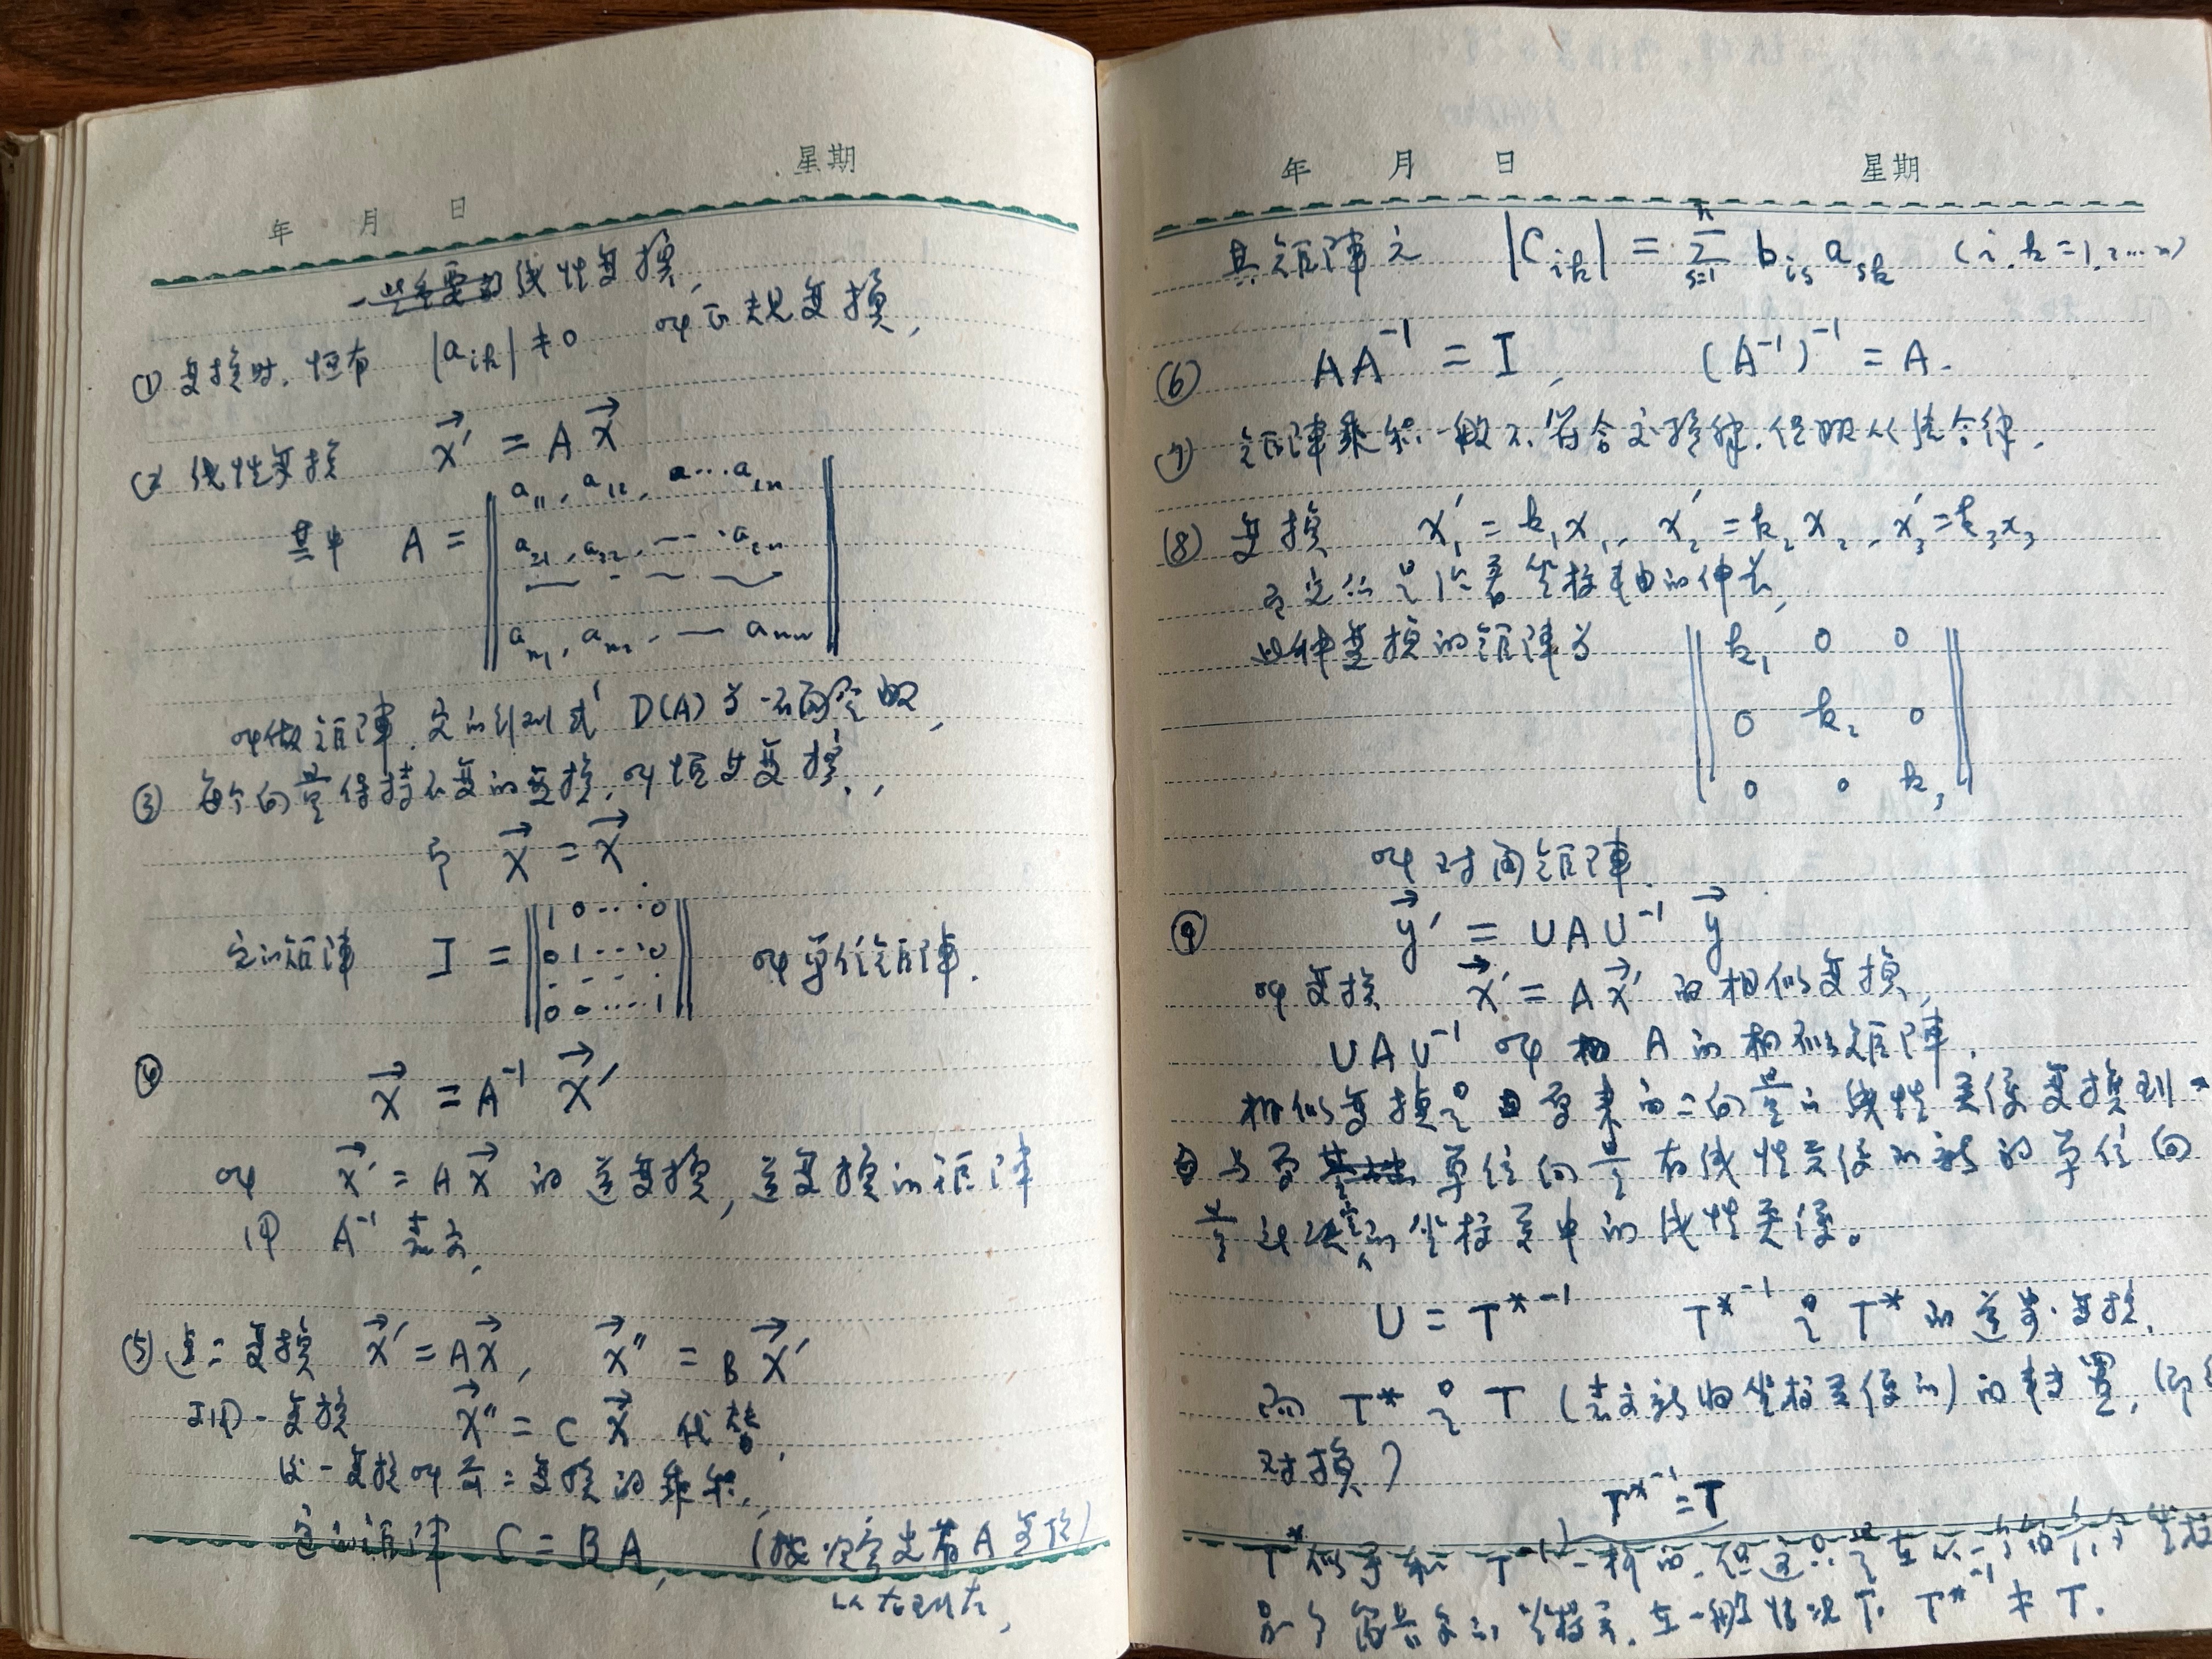 年 月 日 星期
一些重要的线性变换,
① 变换时, 恒有 |a_ik| ≠ 0 叫正规变换,
② 线性变换 x⃗′ = A x⃗
其中 A = ‖ a₁₁, a₁₂, a…a₁ₙ
a₂₁, a₂₂, — ·a₂ₙ
aₙ₁, aₙ₂, — aₙₙ ‖
叫做矩陣, 它的行列式 D(A) 为
③ 每个向量保持不变的变换, 叫恒等变换,
即 x⃗ = x⃗
它的矩陣 I = ‖ 1 0 … 0
0 1 … 0
0 0 … 1 ‖ 叫单位矩陣.
④ x⃗ = A⁻¹ x⃗′
叫 x⃗′ = A x⃗ 的逆变换, 逆变换的矩陣
用 A⁻¹ 表示,
⑤ 这二变换 x⃗′ = A x⃗, x⃗″ = B x⃗′
可用一变换 x⃗″ = C x⃗ 代替,
这一变换叫前二变换的乘积,
它的矩陣 C = B A, (按规定先有 A 变换)
从右到左,
年 月 日 星期
其矩陣之 |C_ik| = Σₛ₌₁ⁿ b_is a_sk (i, k = 1, 2 … n)
⑥ AA⁻¹ = I, (A⁻¹)⁻¹ = A.
⑦ 矩陣乘积一般不符合交换律, 但服从结合律,
⑧ 变换 x₁′ = k₁x₁, x₂′ = k₂x₂, x₃′ = k₃x₃
是沿着坐标轴的伸长,
此种变换的矩陣为 ‖ k₁ 0 0
0 k₂ 0
0 0 k₃ ‖
叫对角矩陣
⑨ y⃗′ = UAU⁻¹ y⃗
叫变换 x⃗′ = A x⃗′ 的相似变换,
UAU⁻¹ 叫 A 的相似矩陣,
相似变换是由原来的二向量的线性关係变换到
与原单位向量有线性关係的新的单位向
量决定的坐标系中的线性关係。
U = T*⁻¹ T*⁻¹ 是 T* 的逆变换,
而 T* 是 T (表示新旧坐标关係的) 的转置, (即
对换)
T*⁻¹ = T
T* 似乎和 T⁻¹ 一样的, 但这只是在从一个
另一个 的坐标系, 在一般情况下 T*⁻¹ ≠ T.